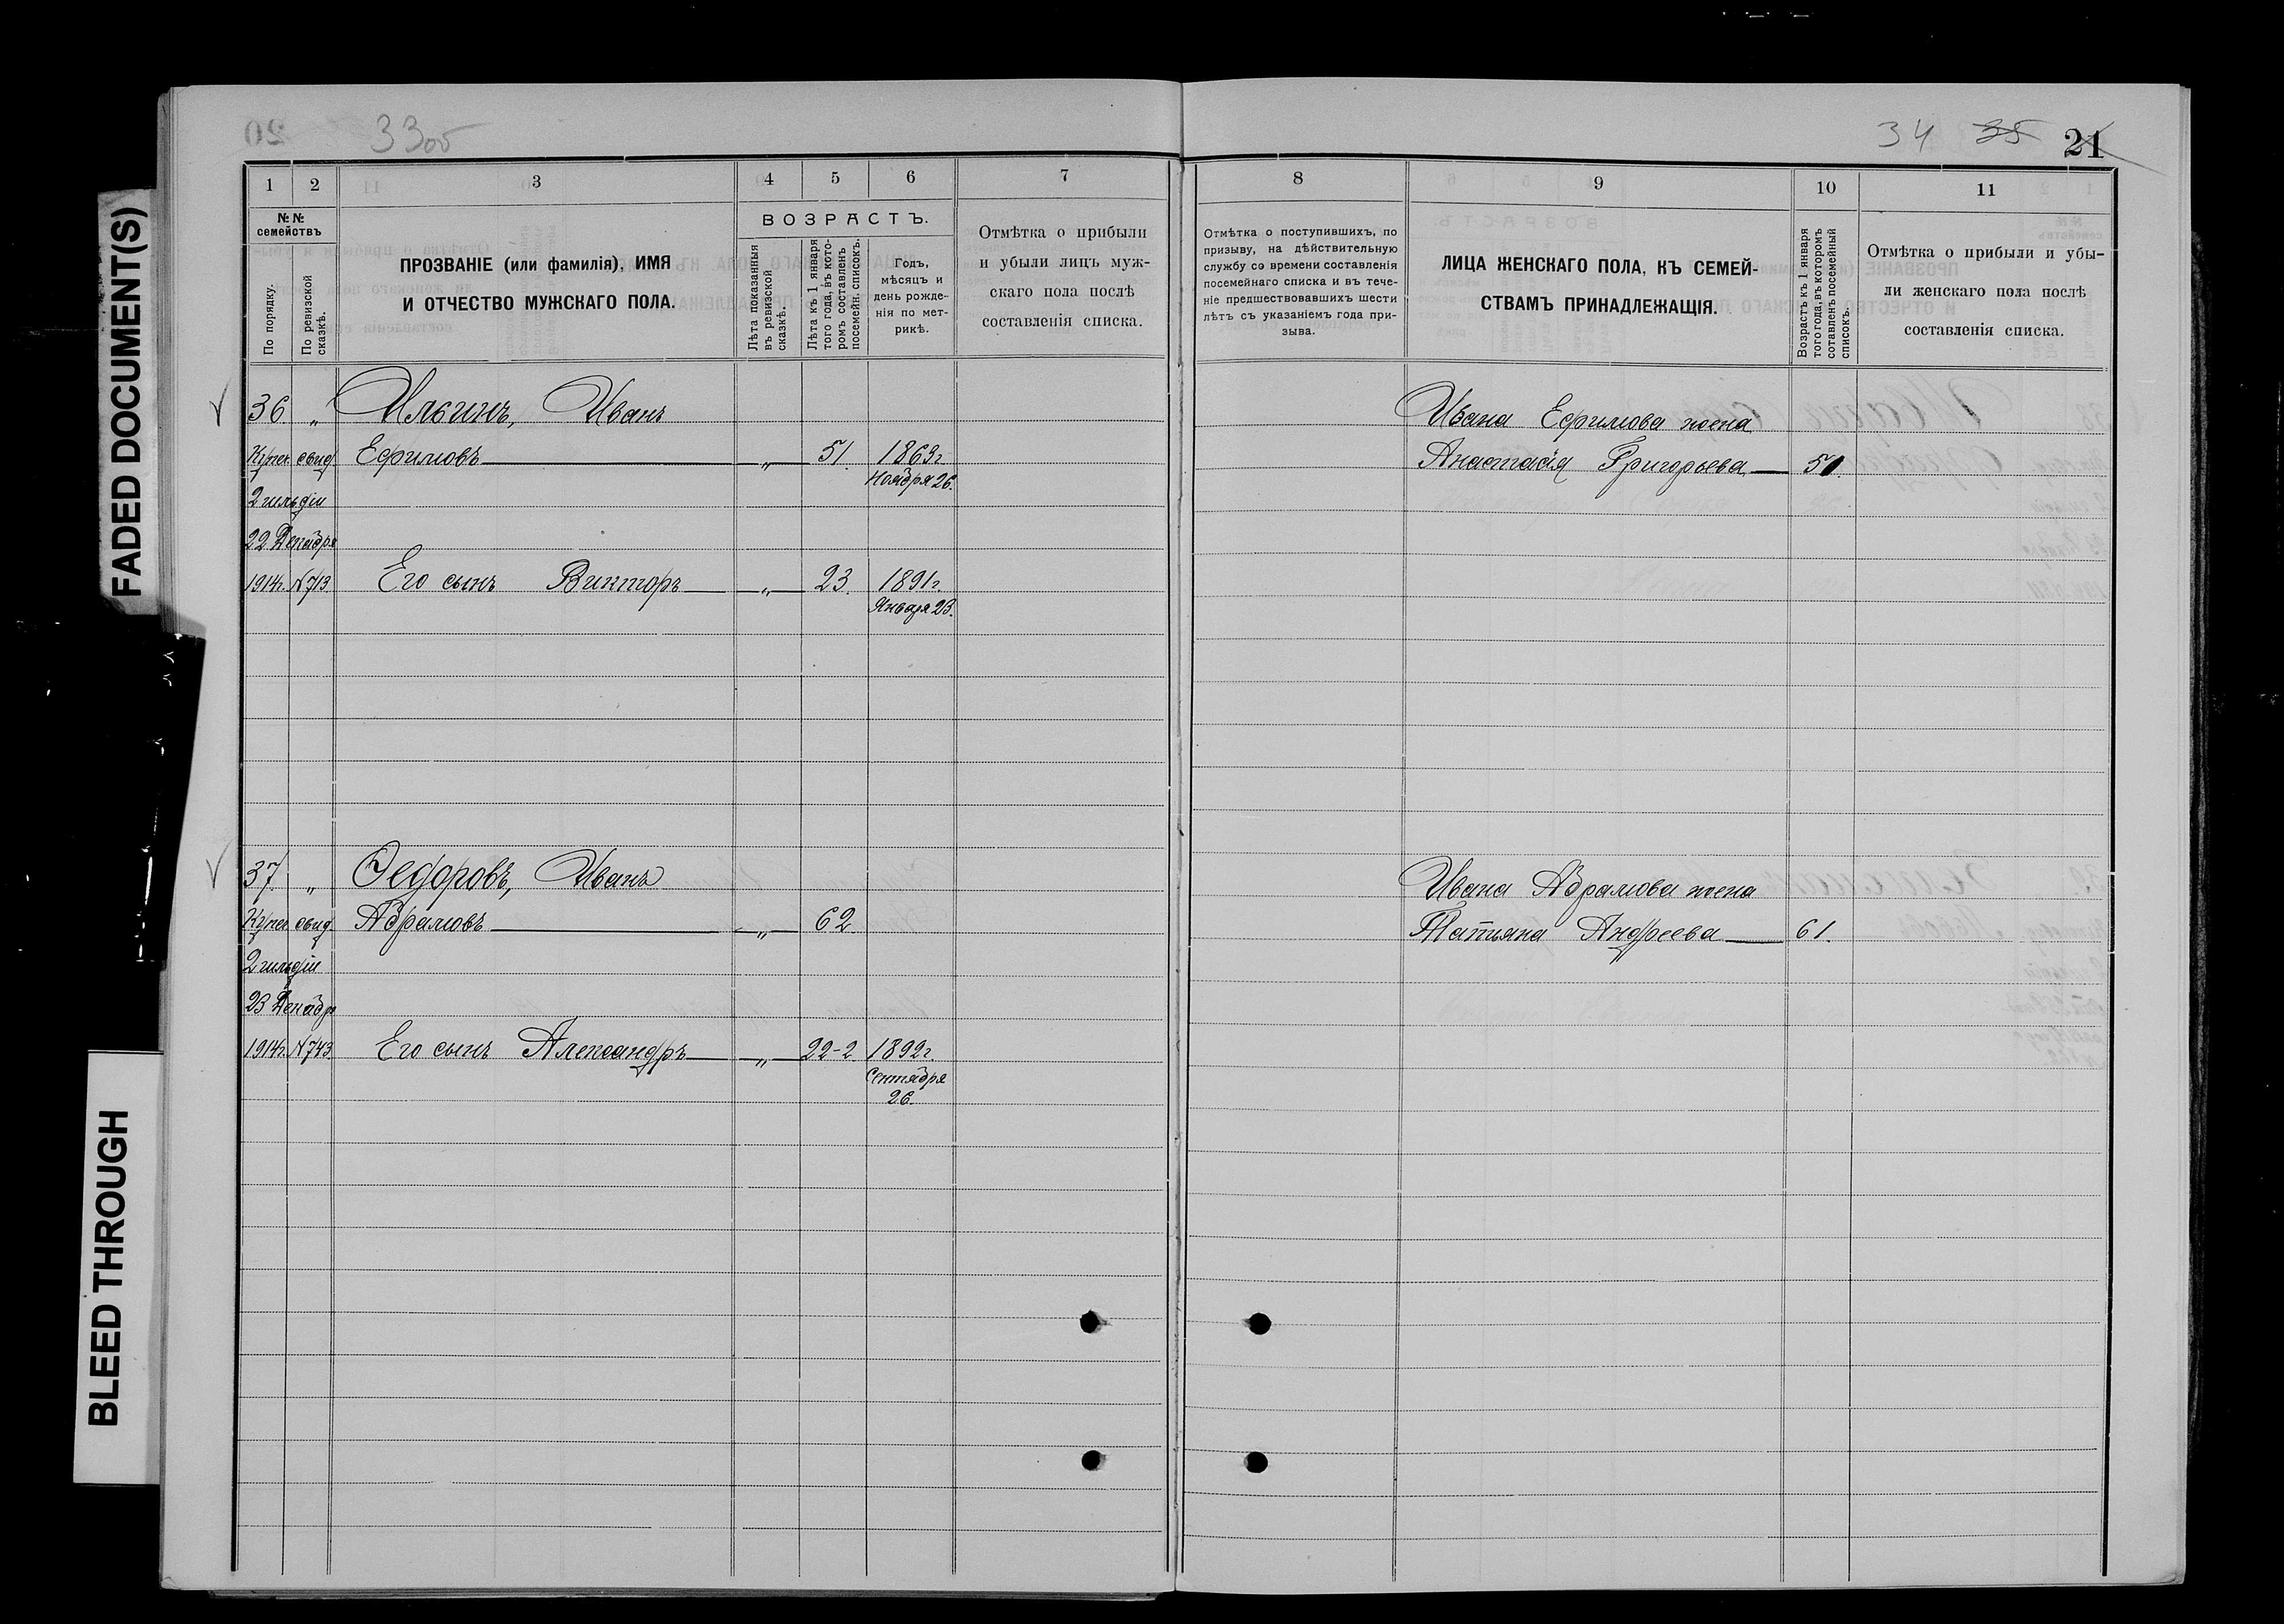 FADED DOCUMENT(S)
BLEED THROUGH
33об
34 35 21
1 2 3 4 5 6 7
№ № семействъ
По порядку.
По ревизской сказкѣ.
ПРОЗВАНІЕ (или фамилія), ИМЯ
И ОТЧЕСТВО МУЖСКАГО ПОЛА.
ВОЗРАСТЪ.
Лѣта показанныя
въ ревизской
сказкѣ.
Лѣта къ 1 января
того года, въ кото-
ромъ составленъ
посемейн. списокъ.
Годъ,
мѣсяцъ и
день рожде-
нія по мет-
рикѣ.
Отмѣтка о прибыли
и убыли лицъ муж-
скаго пола послѣ
составленія списка.
36 „ Ильинъ, Иванъ
Купеч. свид. Ефимовъ „ 51. 1863 г.
2 гильдіи Ноября 26.
22 Декабря
1914 г. №713 Его сынъ Викторъ „ 23. 1891 г.
Января 23.
37 „ Федоровъ, Иванъ
Купеч. свид. Абрамовъ „ 62
2 гильдіи
23 Декабр.
1914 г. №743 Его сынъ Александръ „ 22-2 1892 г.
Сентября
26.
8 9 10 11
Отмѣтка о поступившихъ, по
призыву, на дѣйствительную
службу со времени составленія
посемейнаго списка и въ тече-
ніе предшествовавшихъ шести
лѣтъ съ указаніемъ года при-
зыва.
ЛИЦА ЖЕНСКАГО ПОЛА, КЪ СЕМЕЙ-
СТВАМЪ ПРИНАДЛЕЖАЩІЯ.
Возрастъ къ 1 января
того года, въ которомъ
сотавленъ посемейный
списокъ.
Отмѣтка о прибыли и убы-
ли женскаго пола послѣ
составленія списка.
Ивана Ефимова жена
Анастасія Григорьева
Ивана Абрамова жена
Татьяна Андреева 61.